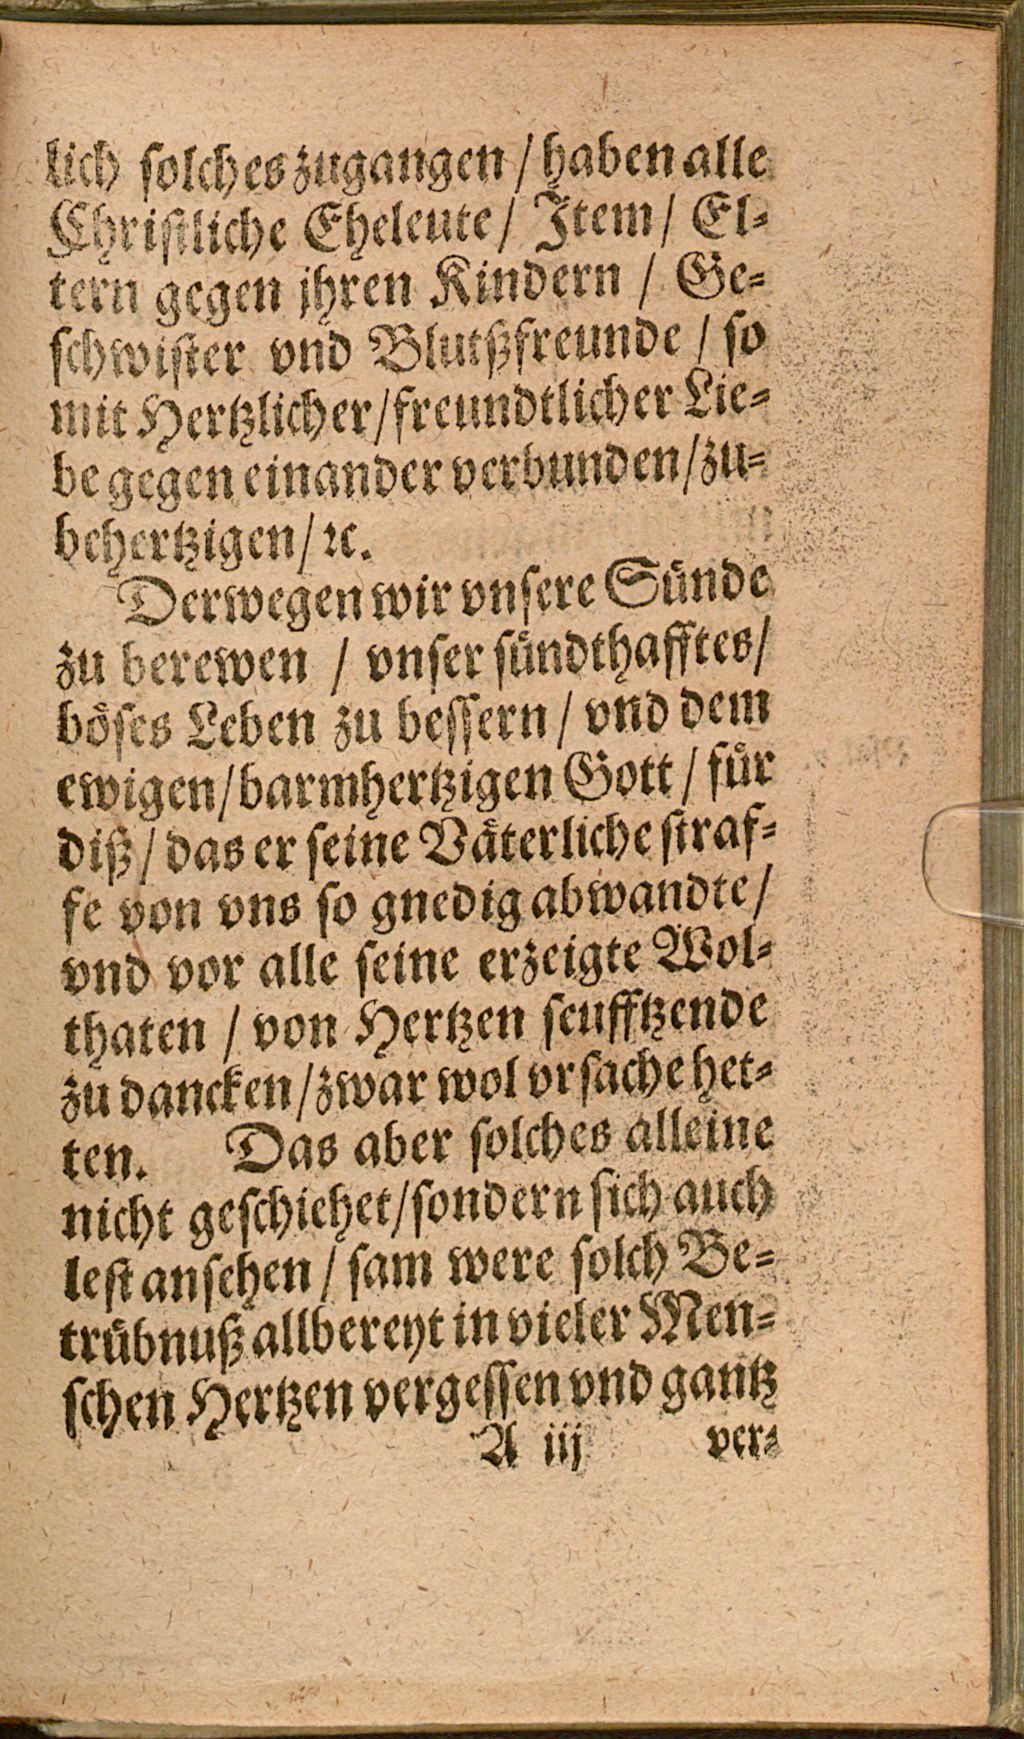 lich solches zugangen / haben alle
Christliche Eheleute / Item / El-
tern gegen jhren Kindern / Ge-
schwister vnd Blutßfreunde / so
mit Hertzlicher / freundtlicher Lie-
be gegen einander verbunden / zu-
behertzigen / ꝛc.
Derwegen wir vnsere Sünde
zu berewen / vnser sündthafftes /
böses Leben zu bessern / vnd dem
ewigen / barmhertzigen Gott / für
diß / das er seine Väterliche straf-
fe von vns so gnedig abwandte /
vnd vor alle seine erzeigte Wol-
thaten / von Hertzen seufftzende
zu dancken / zwar wol vrsache het-
ten. Das aber solches alleine
nicht geschiehet / sondern sich auch
lest ansehen / sam were solch Be-
trübnuß allbereyt in vieler Men-
schen Hertzen vergessen vnd gantz
A iij ver-